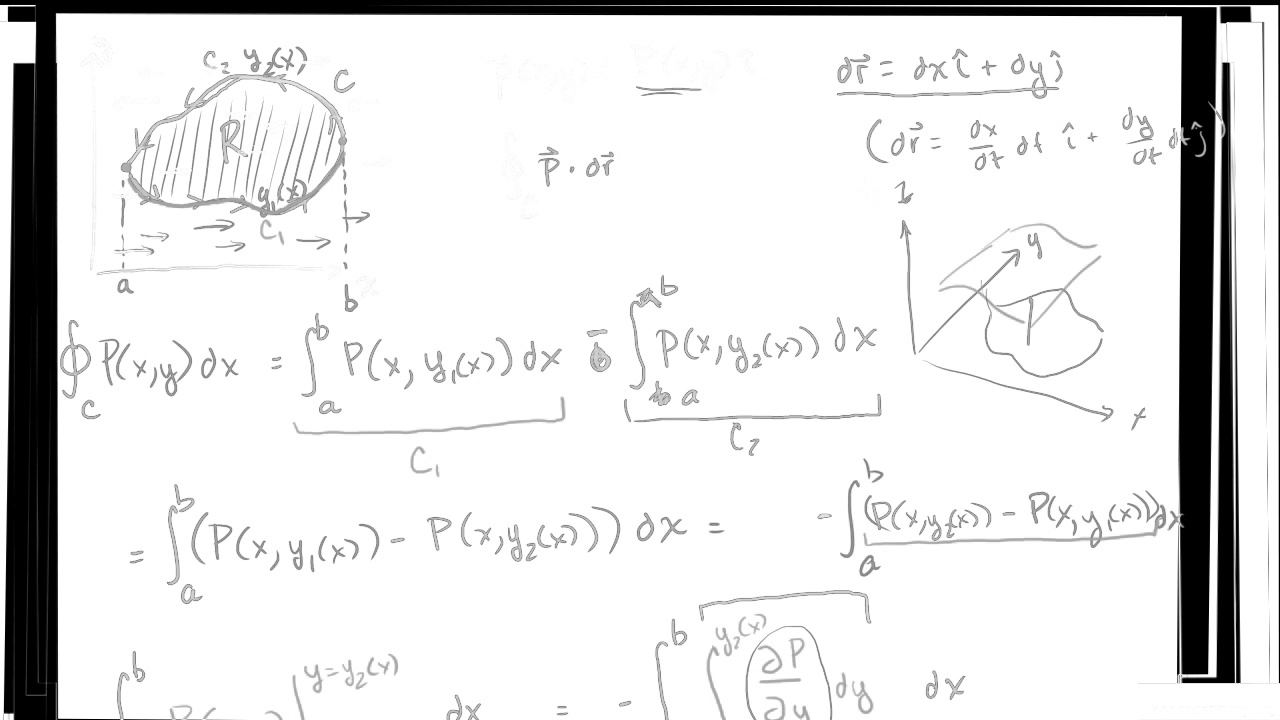 C₂ y₂(x)
C
R
y₁(x)
C₁
a
b
P(x,y) î
P⃗ · dr⃗
dr⃗ = dx î + dy ĵ
(dr⃗ = dx/dt dt î + dy/dt dt ĵ)
y
x
∮_C P(x,y) dx = ∫_a^b P(x, y₁(x)) dx - ∫_a^b P(x, y₂(x)) dx
C₁
C₂
= ∫_a^b (P(x, y₁(x)) - P(x, y₂(x))) dx = - ∫_a^b (P(x, y₂(x)) - P(x, y₁(x))) dx
y = y₂(x) dx = - ∫^b ∫^{y₂(x)} ∂P/∂y dy dx